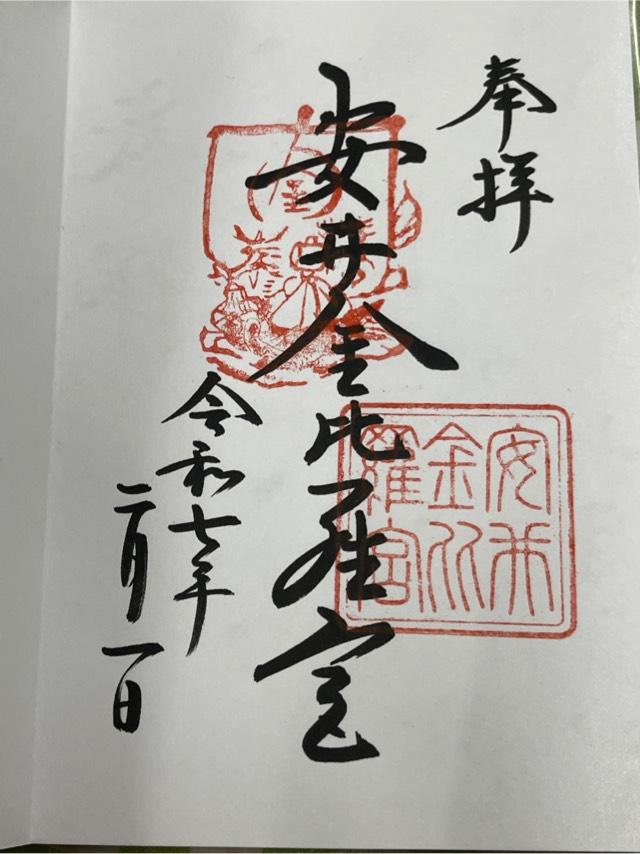 奉拝
安井金比羅宮
令和七年
二月一日
安井
金比
羅宮
金